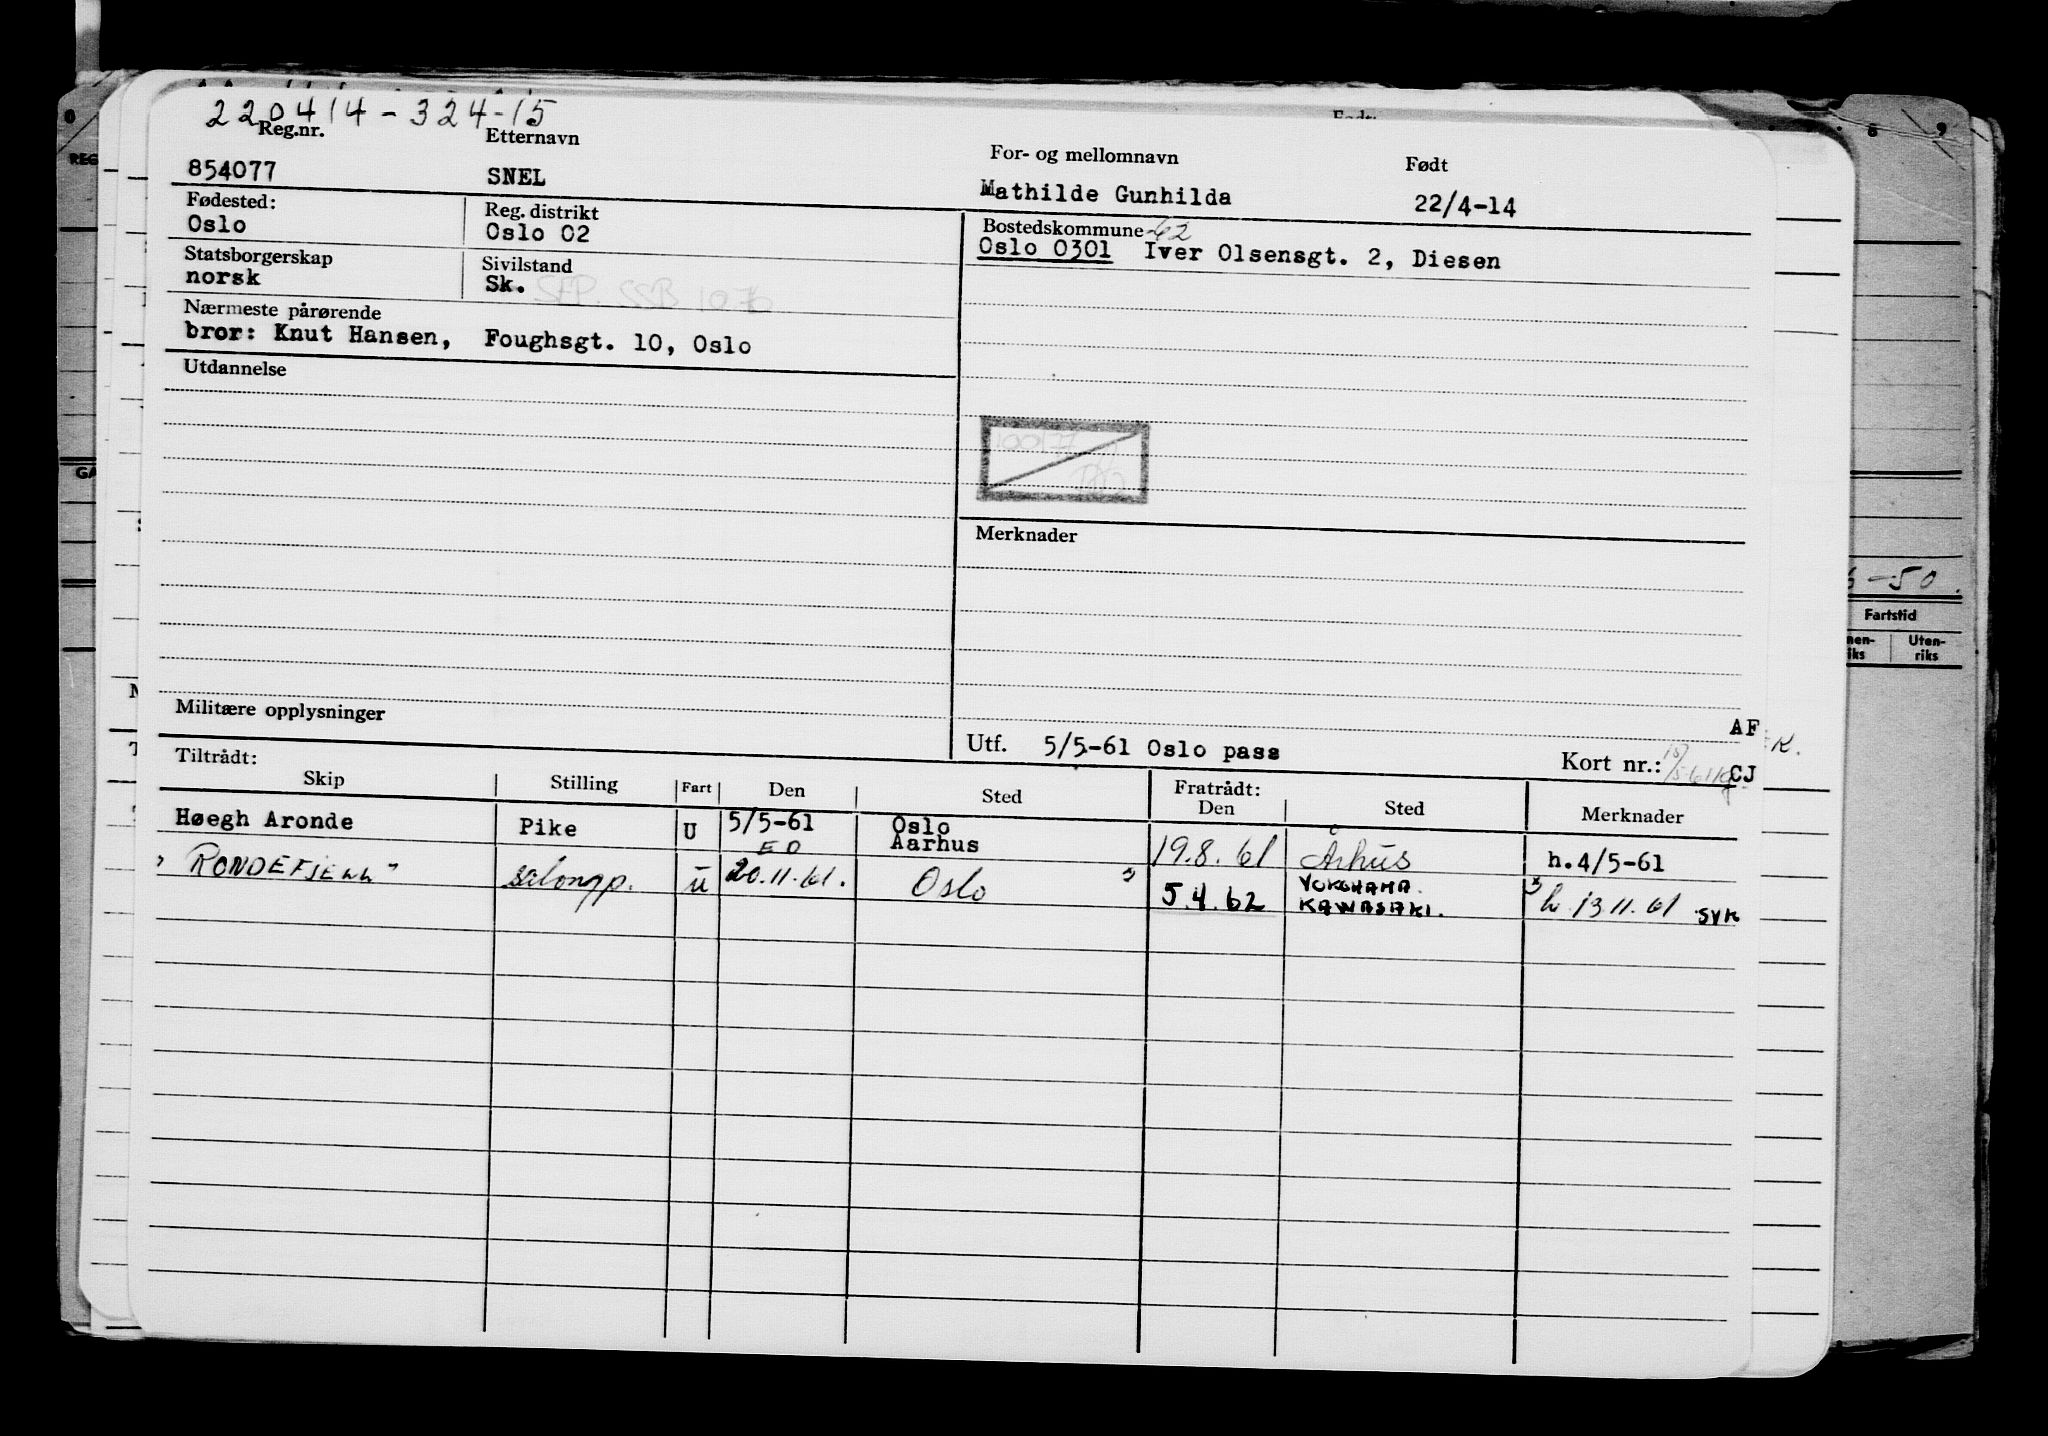 220414-324-15
Reg.nr. Etternavn For- og mellomnavn Født
854077 SNEL Mathilde Gunhilda 22/4-14
Fødested: Reg. distrikt Bostedskommune -62
Oslo Oslo 02 Oslo 0301 Iver Olsensgt. 2, Diesen
Statsborgerskap Sivilstand
norsk Sk.
Nærmeste pårørende
bror: Knut Hansen, Foughsgt. 10, Oslo
Utdannelse
100177
Merknader
Militære opplysninger
AF
K.
Utf. 5/5-61 Oslo pass Kort nr.: CJ
Tiltrådt: Fratrådt:
Skip Stilling Fart Den Sted Den Sted Merknader
Høegh Aronde Pike U 5/5-61 Oslo
ED Aarhus 19.8.61 Århus h.4/5-61
"RONDEFJELL" salongp. U 20.11.61. Oslo 5.4.62 YOKOHAMA
KAWASAKI. h. 13.11.61 SYK
8 9
REG
6-50.
Fartstid
Uten-
riks